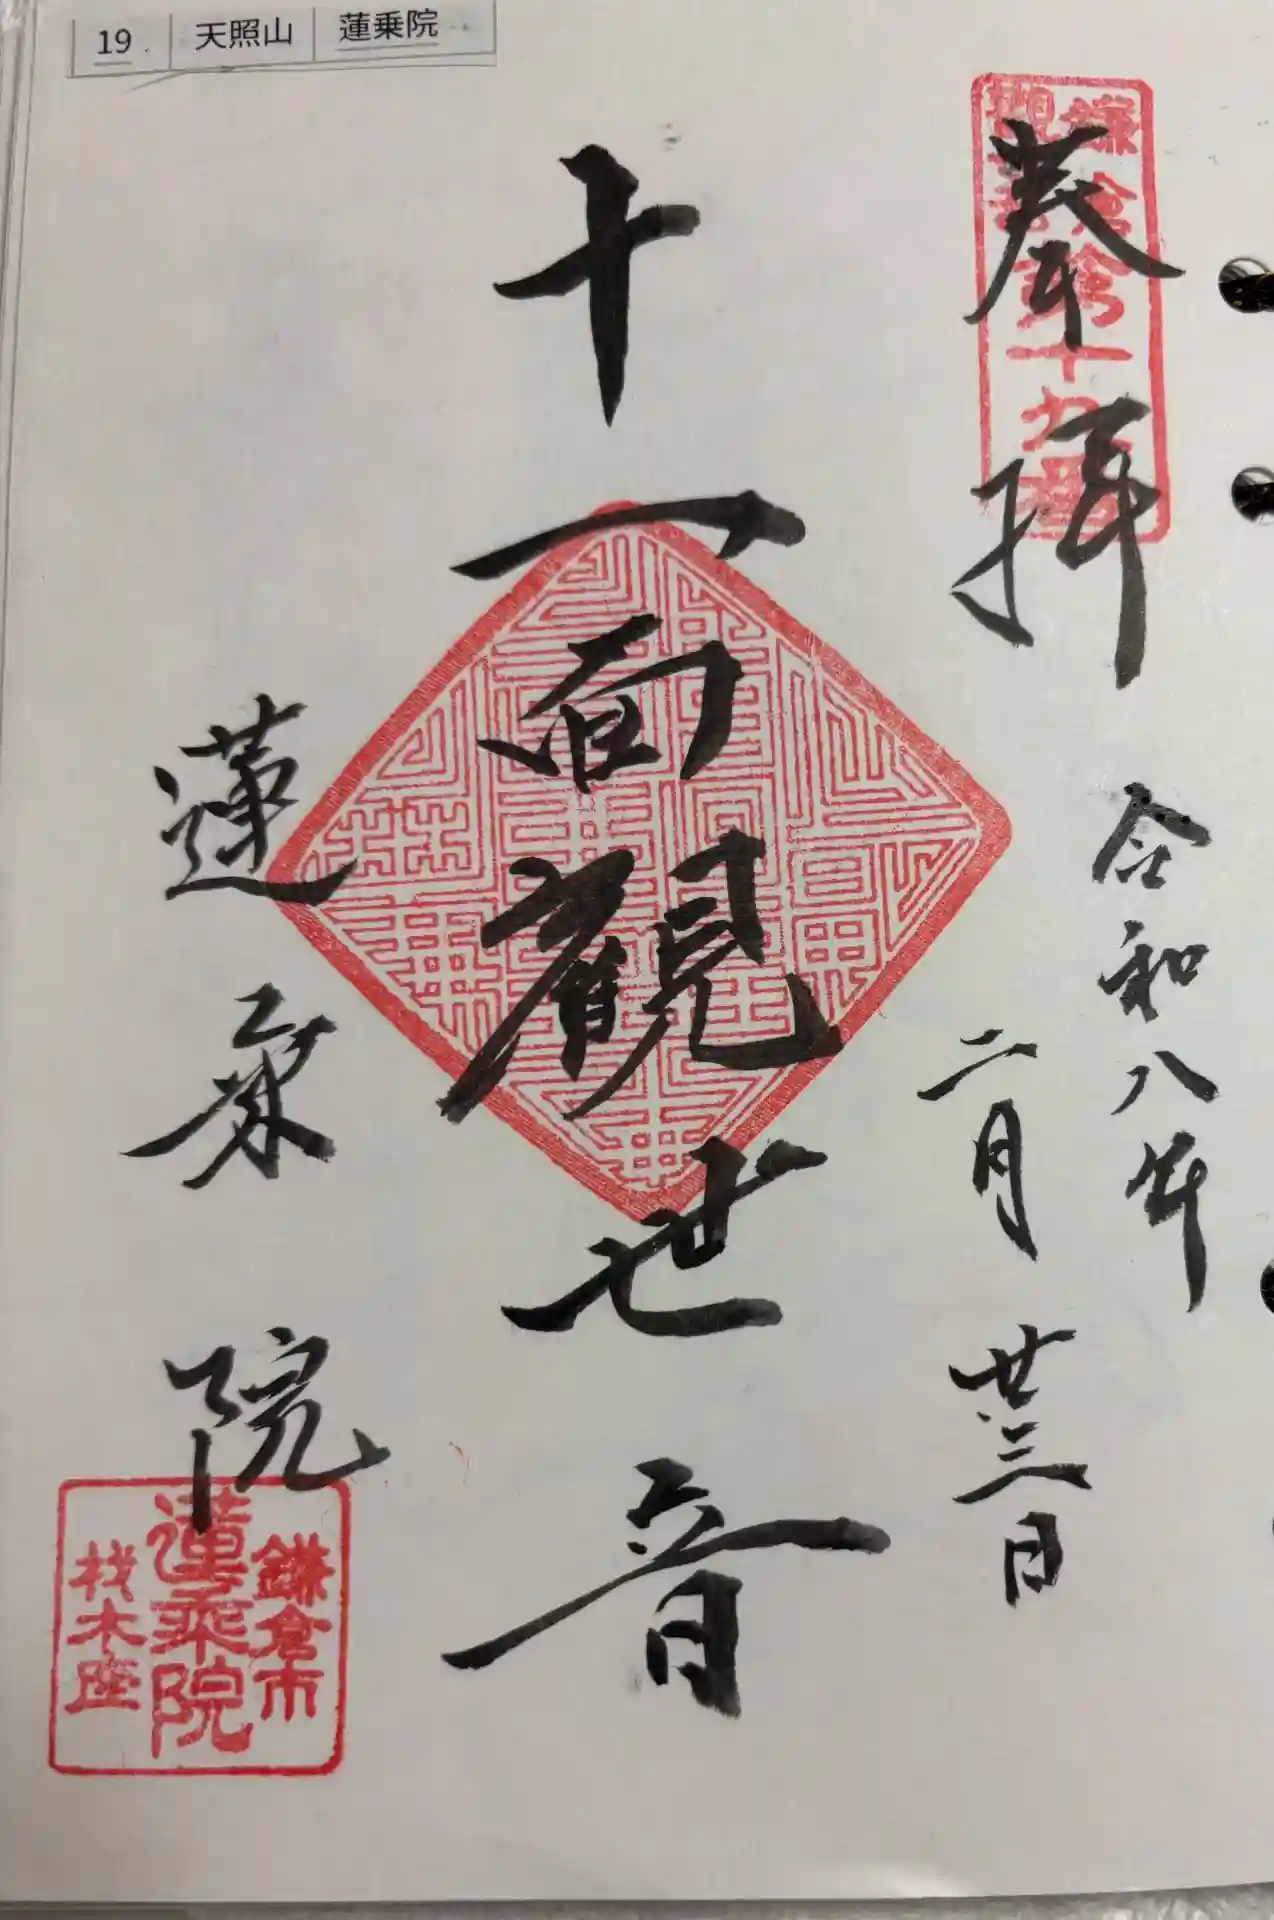 19 天照山 蓮乗院
奉拝
鎌倉
観音
第十九番
令和八年
二月廿三日
十一面觀世音
蓮乗院
鎌倉市
蓮乗院
材木座